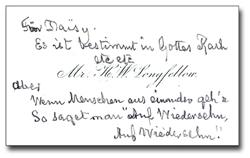 Für Daisy.
Es ist bestimmt in Gottes Rath
etc etc
Mr. H. W. Longfellow.
aber
Wenn Menschen aus einander geh'n
So saget man "Auf Wiedersehn,
Auf Wiedersehn!"